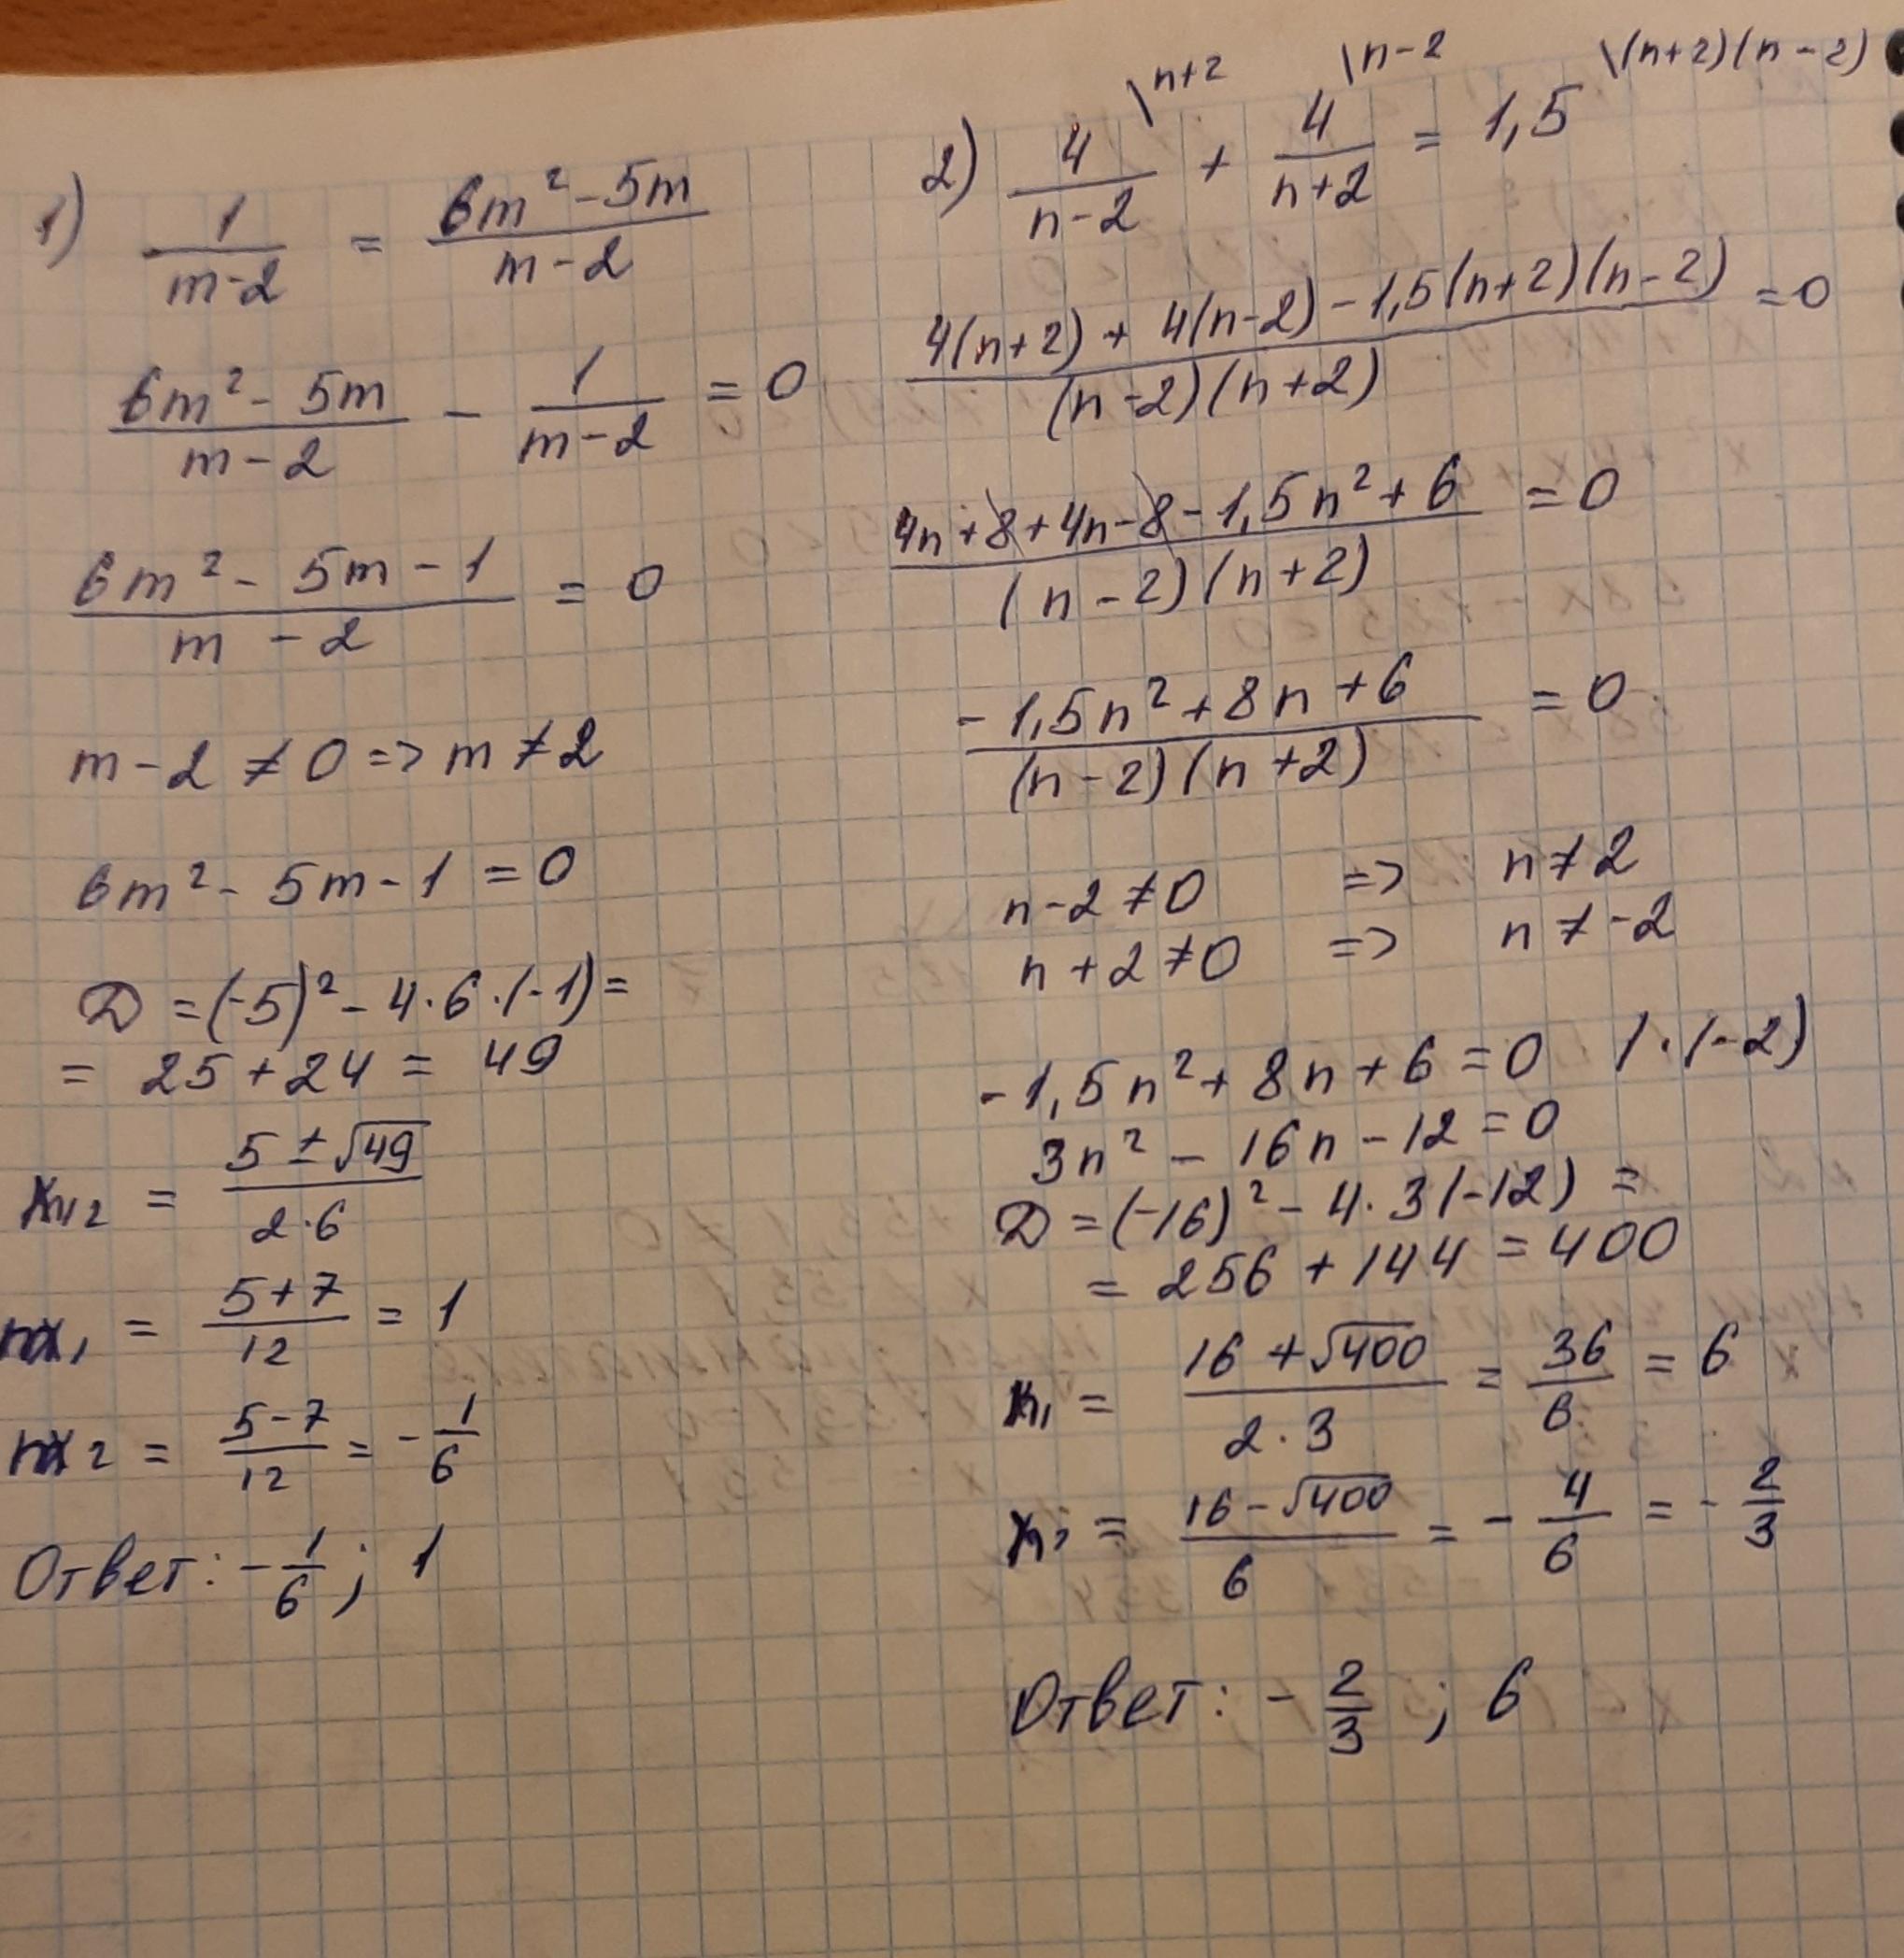 1) 1/(m-2) = (6m² - 5m)/(m-2)
(6m² - 5m)/(m-2) - 1/(m-2) = 0
(6m² - 5m - 1)/(m - 2) = 0
m - 2 ≠ 0 => m ≠ 2
6m² - 5m - 1 = 0
D = (-5)² - 4·6·(-1) =
= 25 + 24 = 49
1,2 = (5 ± √49)/(2·6)
1 = (5+7)/12 = 1
2 = (5-7)/12 = -1/6
Ответ: -1/6; 1
2) 4/(n-2) \n+2 + 4/(n+2) \n-2 = 1,5 \(n+2)(n-2)
(4(n+2) + 4(n-2) - 1,5(n+2)(n-2))/((n-2)(n+2)) = 0
(4n + 8 + 4n - 8 - 1,5n² + 6)/((n-2)(n+2)) = 0
(-1,5n² + 8n + 6)/((n-2)(n+2)) = 0
n-2 ≠ 0 => n ≠ 2
n+2 ≠ 0 => n ≠ -2
-1,5n² + 8n + 6 = 0 | · (-2)
3n² - 16n - 12 = 0
D = (-16)² - 4·3(-12) =
= 256 + 144 = 400
n₁ = (16 + √400)/(2·3) = 36/6 = 6
n₂ = (16 - √400)/6 = -4/6 = -2/3
Ответ: -2/3; 6